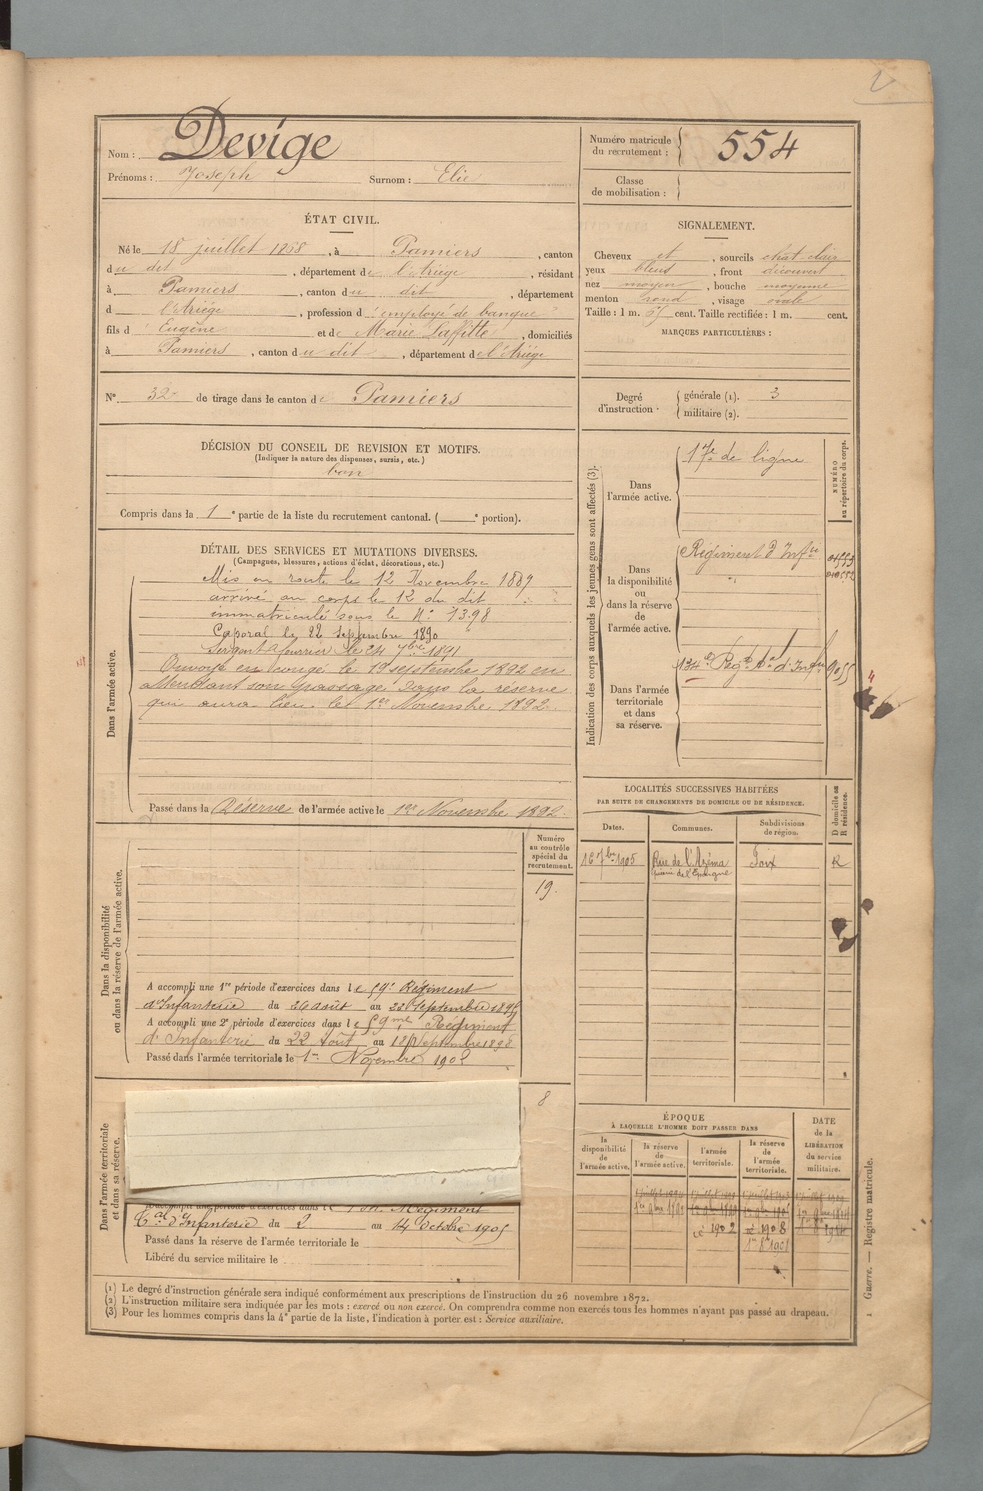 Nom : Devige
Prénoms : Joseph Surnom : Elie
ÉTAT CIVIL.
Né le 18 juillet 1868, à Pamiers, canton
du dit, département de l'Ariège, résidant
à Pamiers, canton du dit, département
d l'Ariége, profession d'employé de banque
fils d'Eugène et de Marie Laffitte, domiciliés
à Pamiers, canton du dit, département de l'Ariége
N° 32 de tirage dans le canton de Pamiers
DÉCISION DU CONSEIL DE REVISION ET MOTIFS.
(Indiquer la nature des dispenses, sursis, etc.)
bon
Compris dans la 1e partie de la liste du recrutement cantonal. ( e portion).
DÉTAIL DES SERVICES ET MUTATIONS DIVERSES.
(Campagnes, blessures, actions d'éclat, décorations, etc.)
Dans l'armée active.
Mis en route le 12 Novembre 1889
arrivé au corps le 12 du dit
immatriculé sous le N° 7398
Caporal le 22 septembre 1890
Sergent fourrier le 24 7bre 1891
Envoyé en congé le 19 septembre 1892 en
attendant son passage dans la réserve
qui aura lieu le 1er Novembre 1892.
Passé dans la Réserve de l'armée active le 1er Novembre 1892.
Numéro
au contrôle
spécial du
recrutement.
19.
Dans la disponibilité
ou dans la réserve de l'armée active.
A accompli une 1re période d'exercices dans le 59e Régiment
d'Infanterie du 26 août au 22 Septembre
A accompli une 2e période d'exercices dans le 59me Régiment
d'Infanterie du 22 Août au 18 Septembre 1898
Passé dans l'armée territoriale le 1er Novembre 1902
8
Dans l'armée territoriale
et dans sa réserve.
période d'exercices dans l Régiment
d'Infanterie du 2 au 14 Octobre 1905
Passé dans la réserve de l'armée territoriale le
Libéré du service militaire le
Numéro matricule
du recrutement : 554
Classe
de mobilisation :
SIGNALEMENT.
Cheveux et, sourcils chat-clair
yeux bleus, front découvert
nez moyen, bouche moyenne
menton rond, visage ovale
Taille : 1 m. cent. Taille rectifiée : 1 m. cent.
MARQUES PARTICULIÈRES :
Degré
d'instruction.
générale (1). 3
militaire (2).
Indication des corps auxquels les jeunes gens sont affectés (3).
NUMÉRO
au répertoire du corps.
Dans
l'armée active.
17e de ligne
Dans
la disponibilité
ou
dans la réserve
de
l'armée active.
Régiment d'Infie
Dans l'armée
territoriale
et dans
sa réserve.
134e Régt tal d'Infie 9055
LOCALITÉS SUCCESSIVES HABITÉES
PAR SUITE DE CHANGEMENTS DE DOMICILE OU DE RÉSIDENCE.
Dates. Communes. Subdivisions
de région.
D domicile ou
R résidence.
16 7bre 1905 Rue de l'Azéma Foix R
de l'Epargne
ÉPOQUE
À LAQUELLE L'HOMME DOIT PASSER DANS
la
disponibilité
de
l'armée active.
la réserve
de
l'armée active.
l'armée
territoriale.
la réserve
de
l'armée
territoriale.
DATE
de la
LIBÉRATION
du service
militaire.
1902 1908
(1) Le degré d'instruction générale sera indiqué conformément aux prescriptions de l'instruction du 26 novembre 1872.
(2) L'instruction militaire sera indiquée par les mots : exercé ou non exercé. On comprendra comme non exercés tous les hommes n'ayant pas passé au drapeau.
(3) Pour les hommes compris dans la 4e partie de la liste, l'indication à porter est : Service auxiliaire.
1 Guerre. — Registre matricule.